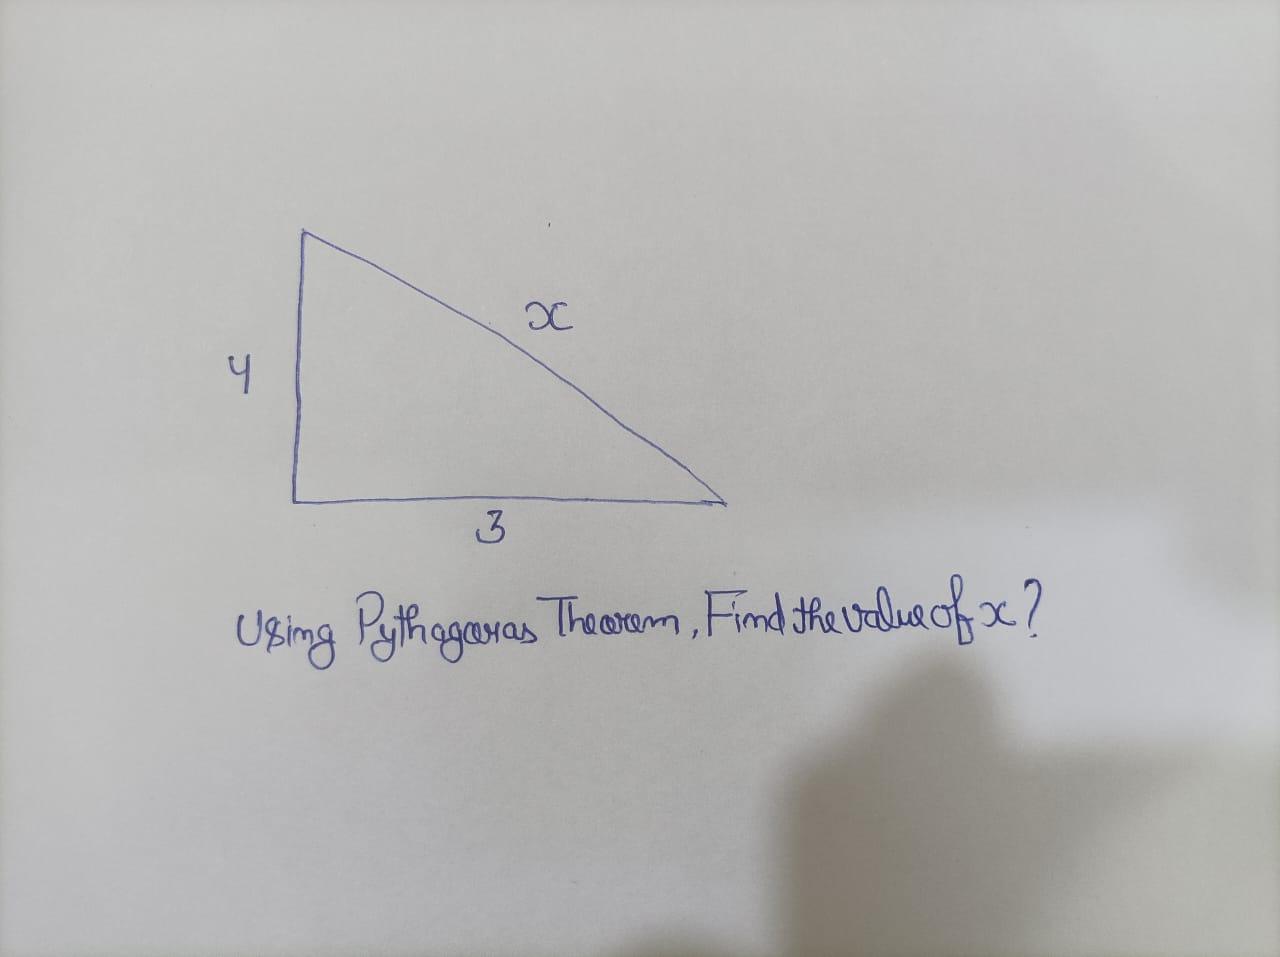 x
4
3
Using Pythagoras Theorem, Find the value of x?